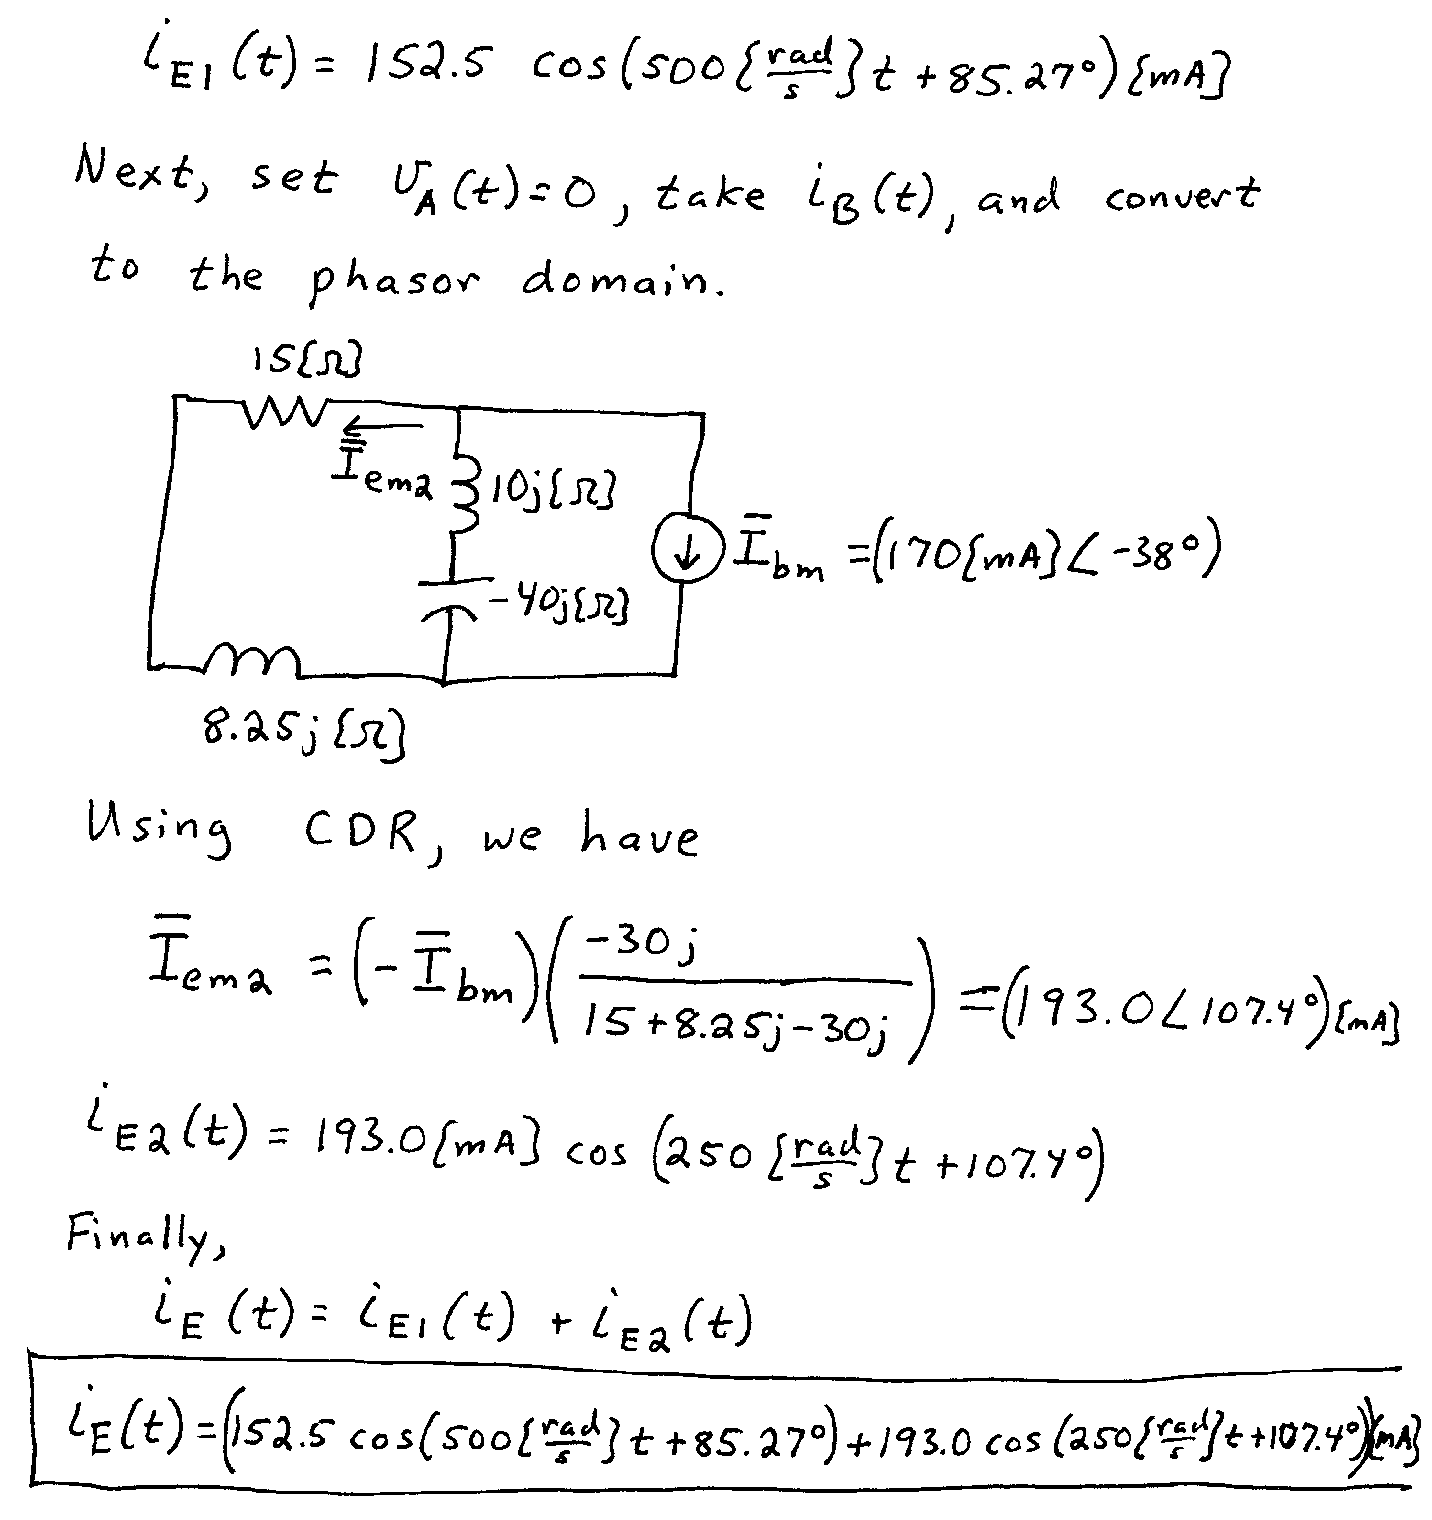 i_E1(t) = 152.5 cos(500{rad/s}t + 85.27°){mA}
Next, set v_A(t)=0, take i_B(t), and convert
to the phasor domain.
15{Ω}
Ī_em2
10j{Ω}
Ī_bm = (170{mA}∠-38°)
-40j{Ω}
8.25j{Ω}
Using CDR, we have
Ī_em2 = (-Ī_bm)(-30j / (15+8.25j-30j)) = (193.0∠107.4°){mA}
i_E2(t) = 193.0{mA} cos(250{rad/s}t + 107.4°)
Finally,
i_E(t) = i_E1(t) + i_E2(t)
i_E(t) = (152.5 cos(500{rad/s}t + 85.27°) + 193.0 cos(250{rad/s}t + 107.4°)){mA}